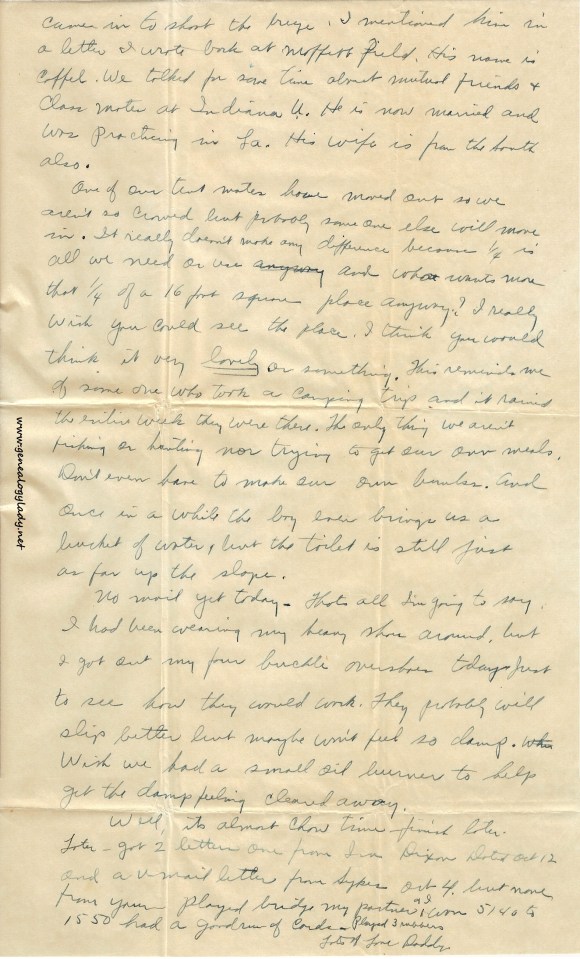 came in to shoot the breeze. I mentioned him in
a letter I wrote back at Moffett Field. His name is
Coffel. We talked for some time about mutual friends &
Class mates at Indiana U. He is now married and
was Practicing in La. His wife is from the South
also.
One of our tent mates have moved out so we
aren't so crowed but probaly some one else will move
in. It really doesn't make any difference because 1/4 is
all we need or use anyway and who wants more
that 1/4 of a 16 foot square place anyway? I really
Wish you could see the place. I think you would
think it very lovely or something. This reminds me
of some one who took a camping trip and it rained
the entire week they were there. The only thing we aren't
fishing or hunting nor trying to get our own meals.
Don't even have to make our own bunks. And
once in a while the boy even brings us a
bucket of water, but the toilet is still just
as far up the slope.
No mail yet today - Thats all I'm going to say.
I had been wearing my heavy shoes around, but
I got out my four buckle overshoes today just
to see how they would work. They probably will
slip better but maybe won't feel so damp.
Wish we had a small oil burner to help
get the damp feeling cleared away.
Well, its almost Chow time - finish later.
Later - got 2 letters one from Ira Dixon Dated Oct 12
and a V-mail letter from Sykes Oct 4. but none
from you. Played bridge my partner & I won 5140 to
1550 had a good run of Cards - Played 3 rubbers
Lots of Love Daddy
www.genealogylady.net